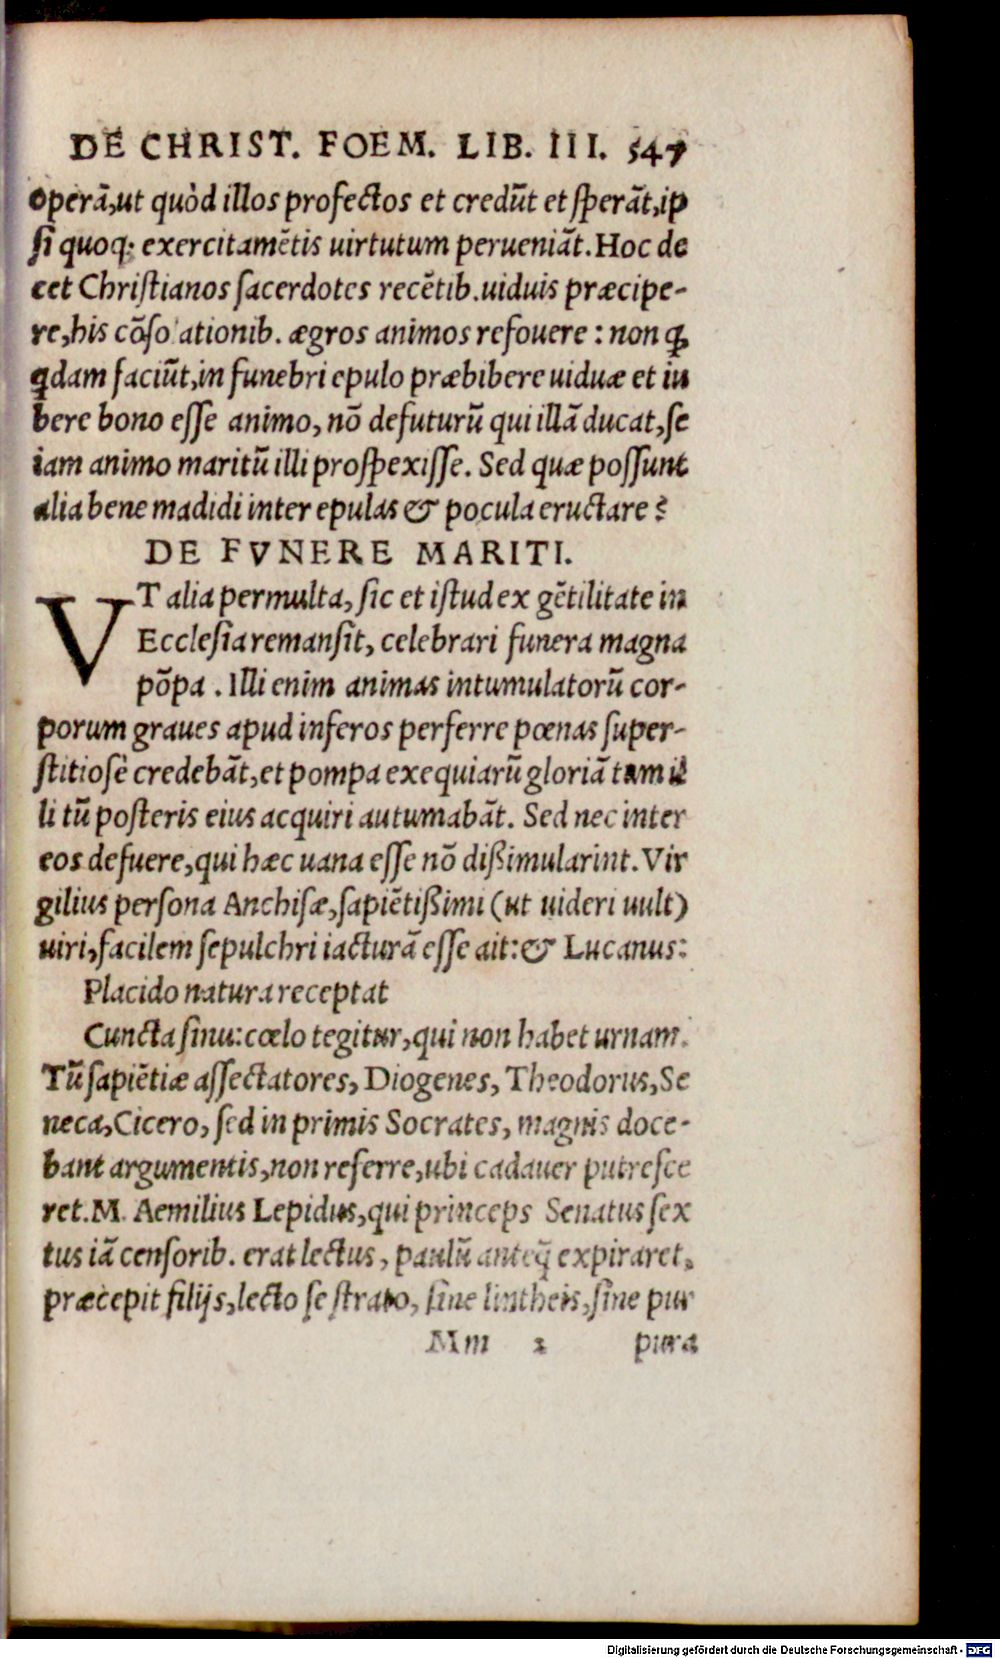 DE CHRIST. FOEM. LIB. III. 547
operā,ut quòd illos profectos et credūt et sperāt,ip
si quoq; exercitamētis uirtutum perueniāt. Hoc de
cet Christianos sacerdotes recētib. uiduis præcipe-
re, his cōso ationib. ægros animos refouere : non ꝙ
q̃dam faciūt, in funebri epulo præbibere uiduæ et iu
bere bono esse animo, nō defuturū qui illā ducat, se
iam animo maritū illi prospexisse. Sed quæ possunt
alia bene madidi inter epulas & pocula eructare?
DE FVNERE MARITI.
VT alia permulta, sic et istud ex gētilitate in
Ecclesia remansit, celebrari funera magna
pōpa . Illi enim animas intumulatorū cor-
porum graues apud inferos perferre pœnas super-
stitiosè credebāt, et pompa exequiarū gloriā tam il
li tū posteris eius acquiri autumabāt. Sed nec inter
eos defuere, qui hæc uana esse nō dißimularint. Vir
gilius persona Anchisæ, sapiētißimi (ut uideri uult)
uiri, facilem sepulchri iacturā esse ait: & Lucanus:
Placido natura receptat
Cuncta sinu: cœlo tegitur, qui non habet urnam.
Tū sapiētiæ assectatores, Diogenes, Theodorus, Se
neca, Cicero, sed in primis Socrates, magnis doce-
bant argumentis, non referre, ubi cadauer putresce
ret. M. Aemilius Lepidus, qui princeps Senatus sex
tus iā censorib. erat lectus, paulū anteq̃ expiraret,
præcepit filijs, lecto se strato, sine lintheis, sine pur
Mm 2 pura
Digitalisierung gefördert durch die Deutsche Forschungsgemeinschaft - DFG